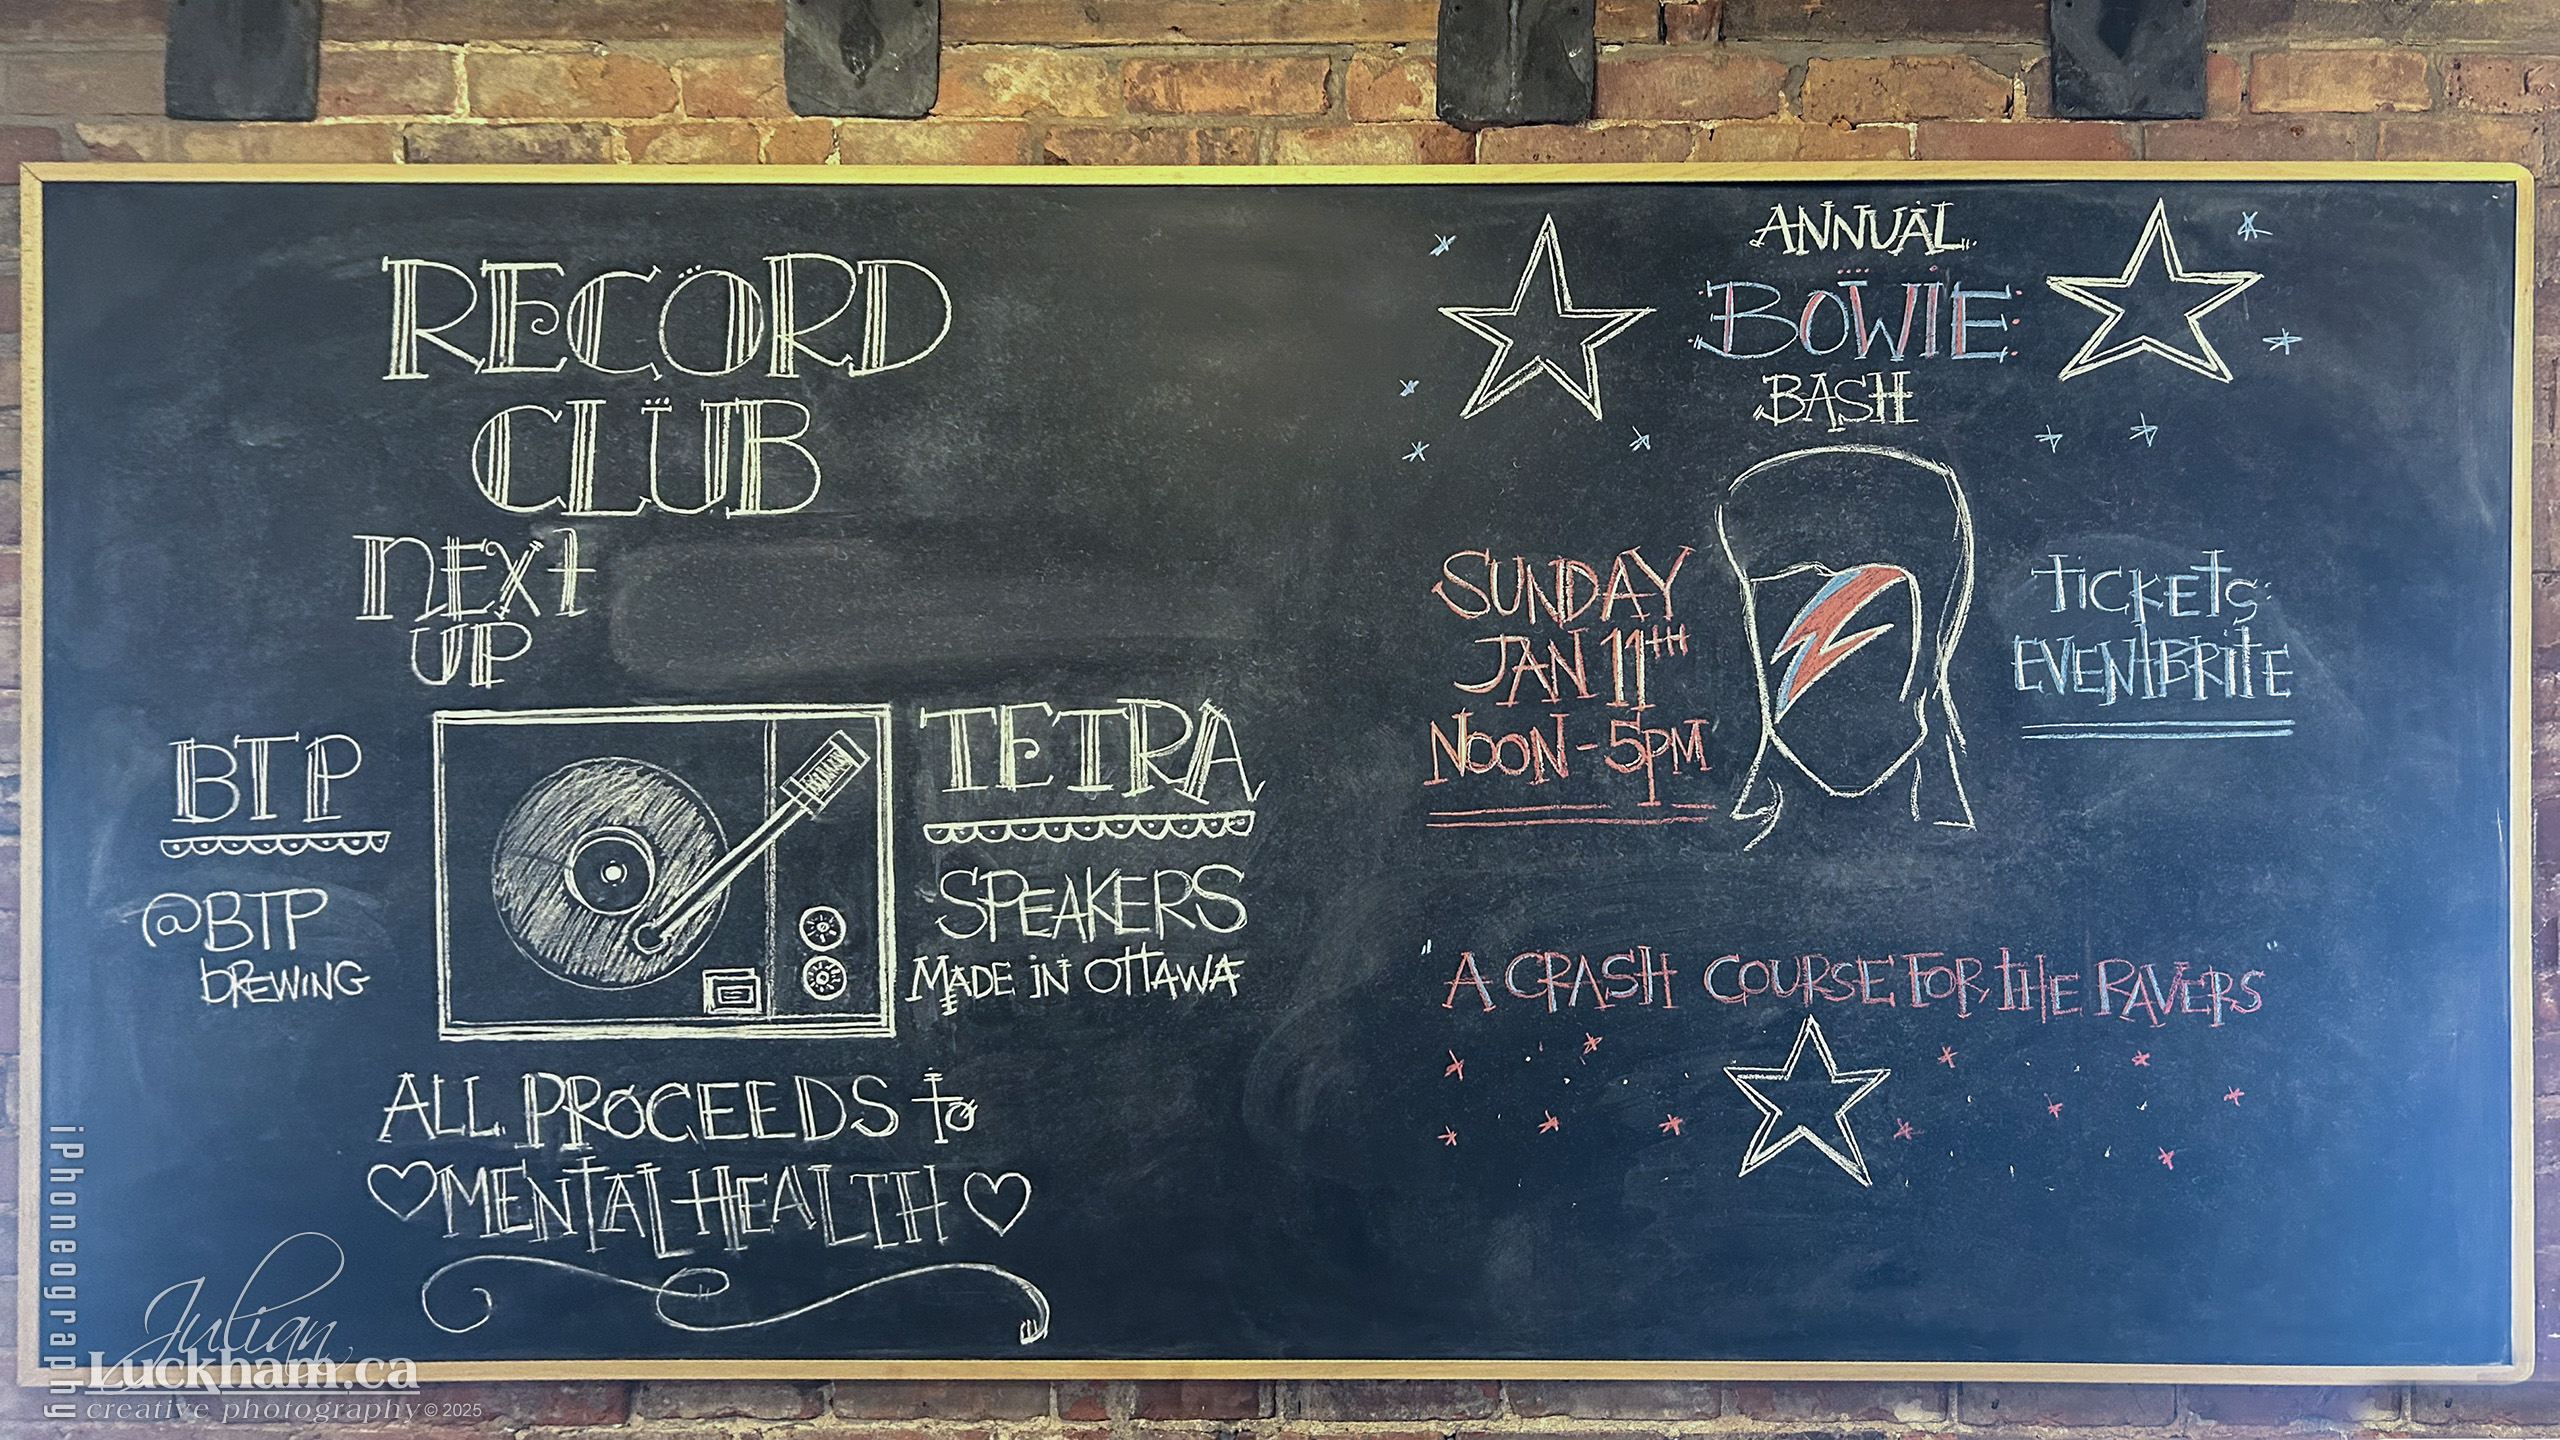 RECORD
CLUB
NEXT
UP
BTP
@BTP
BREWING
TETRA
SPEAKERS
MADE IN OTTAWA
ALL PROCEEDS to
MENTAL HEALTH
ANNUAL
BOWIE
BASH
SUNDAY
JAN 11TH
NOON - 5PM
TICKETS:
EVENTBRITE
"A CRASH COURSE FOR THE RAVERS"
iPhoneography
Julian
Luckham.ca
creative photography © 2025